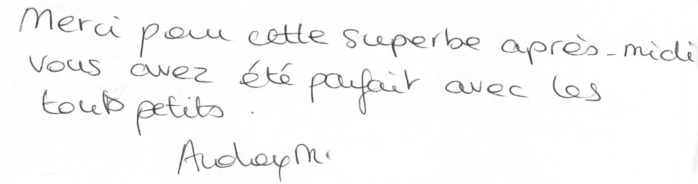 Merci pour cette superbe après-midi
vous avez été parfait avec les
touts petits.
Audrey M.